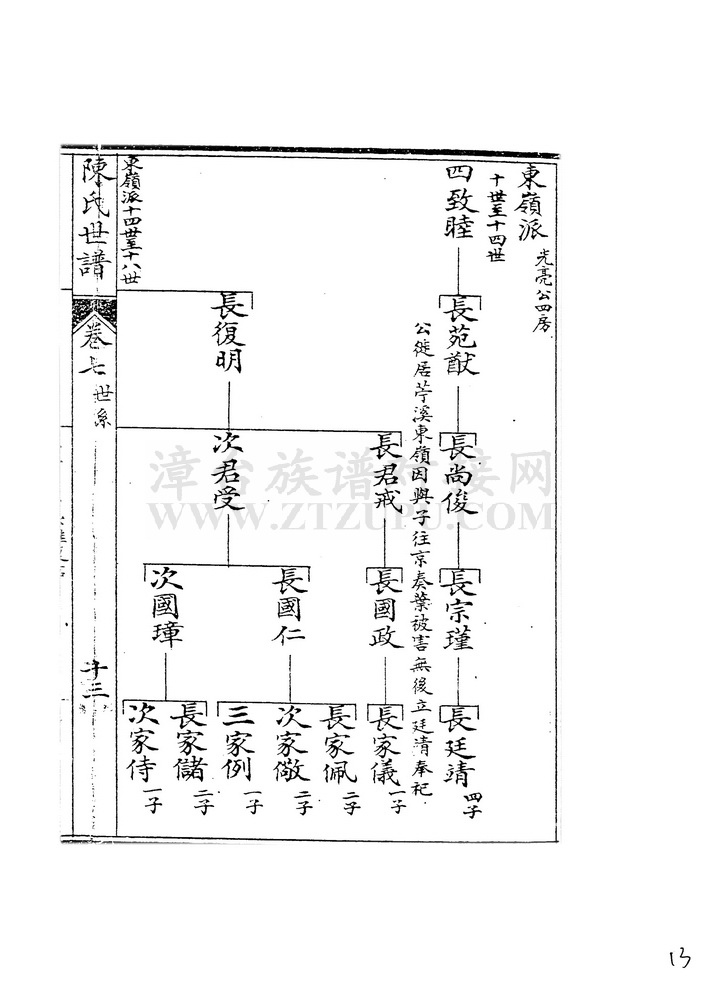 東嶺派
光亮公四房
十世至十四世
四致睦
長苑猷
長尚俊
長宗瑾
長廷靖
四子
公徙居苧溪東嶺因與子往京奏葉被害無後立廷清奉祀
長君戒
長國政
長家儀
一子
長復明
次君受
長國仁
長家佩
二子
次家儆
二子
三家例
一子
次國璋
長家儲
二子
次家侍
一子
東嶺派十四世至十八世
陳氏世譜
卷七
世系
十三
漳台族谱对接网
WWW.ZTZUPU.COM
13